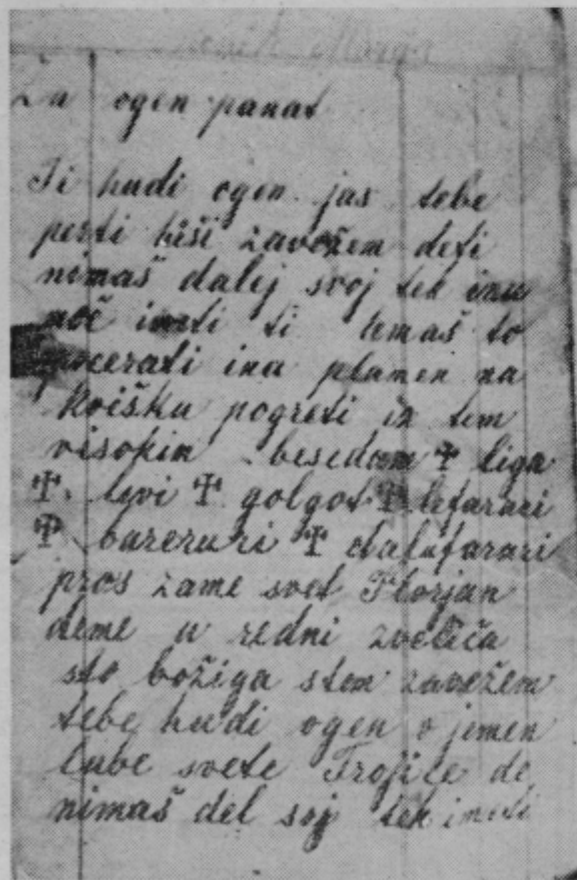 Za ogen panat
Ti hudi ogen jas tebe
per ti hiši zavežem deti
nimaš dalej svoj tek inu
moč imeti ti temaš to
ina plamen na
kvišku pogreti is tem
visokim besedam ☩ liga
☩ levi ☩ golgot ☩ lefaruri
☩ bareruri ☩ dalafaruri
pros zame svet Florjan
deme u redni zveliča
sto božiga stem zavežem
tebe hudi ogen v jemen
lube svete Trojice de
nimaš del soj tek imeti